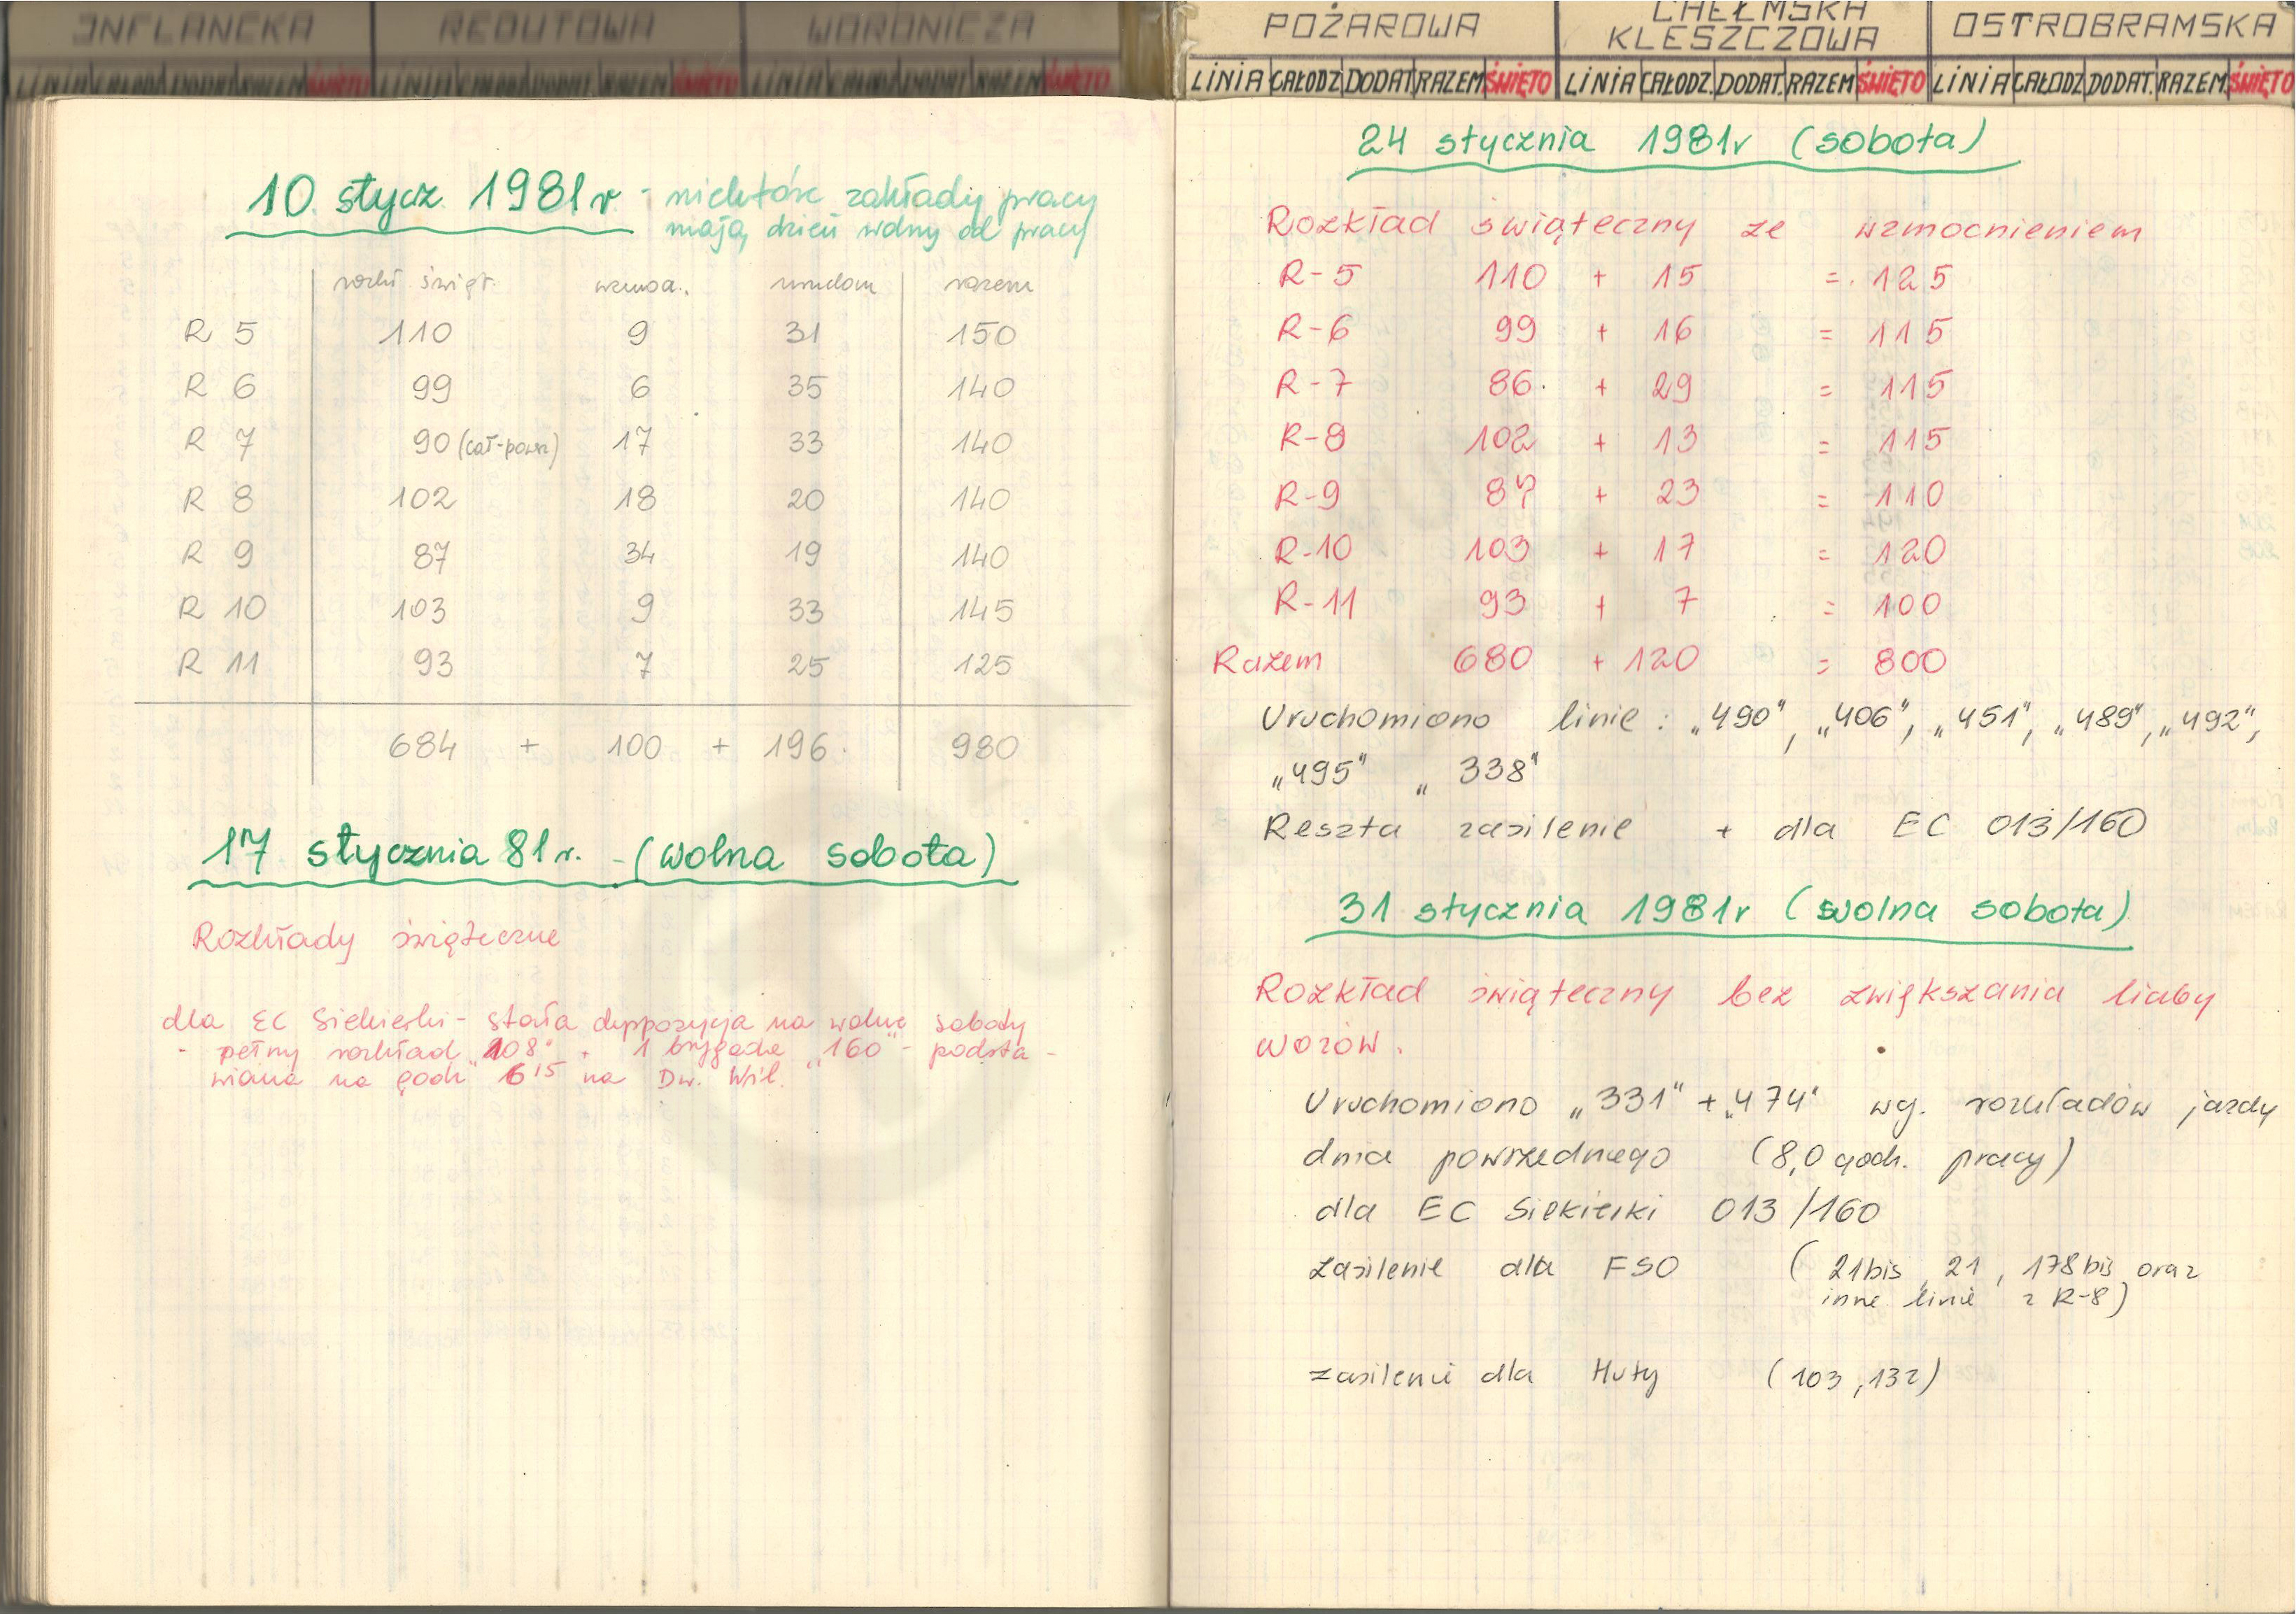 INFLANCKA REDUTOWA WORONICZA
LINIA CAŁODZ DODAT RAZEM ŚWIĘTO LINIA CAŁODZ DODAT RAZEM ŚWIĘTO LINIA CAŁODZ DODAT RAZEM ŚWIĘTO
10. stycz. 1981r - niektóre zakłady pracy
mają dzień wolny od pracy
rozkł. święt. wzmoc. razem
R 5 110 9 31 150
R 6 99 6 35 140
R 7 90 (cał-powsz) 17 33 140
R 8 102 18 20 140
R 9 87 34 19 140
R 10 103 9 33 145
R 11 93 7 25 125
684 + 100 + 196. 980
17 stycznia 81r. - (wolna sobota)
Rozkłady świąteczne
dla EC Siekierki - stała dyspozycja na wolne soboty
- pełny rozkład „108" + 1 brygada „160" - podsta-
wiana na godz 6¹⁵ na Dw. Wil.
POŻAROWA CHEŁMSKA KLESZCZOWA OSTROBRAMSKA
LINIA CAŁODZ DODAT RAZEM ŚWIĘTO LINIA CAŁODZ. DODAT. RAZEM ŚWIĘTO LINIA CAŁODZ DODAT. RAZEM. ŚWIĘTO
24 stycznia 1981r (sobota)
Rozkład świąteczny ze wzmocnieniem
R-5 110 + 15 = 125
R-6 99 + 16 = 115
R-7 86 + 29 = 115
R-8 102 + 13 = 115
R-9 87 + 23 = 110
R-10 103 + 17 = 120
R-11 93 + 7 = 100
Razem 680 + 120 = 800
Uruchomiono linie : „490", „406", „451", „489", „492",
„495" „338"
Reszta zasilenie + dla EC 013/160
31 stycznia 1981r (wolna sobota)
Rozkład świąteczny bez zwiększania liczby
wozów.
Uruchomiono „331" + „474" wg. rozkładów jazdy
dnia powszedniego (8,0 godz. pracy)
dla EC Siekierki 013/160
zasilenie dla FSO (21bis, 21, 178bis oraz
inne linie z R-8)
zasilenie dla Huty (103, 132)